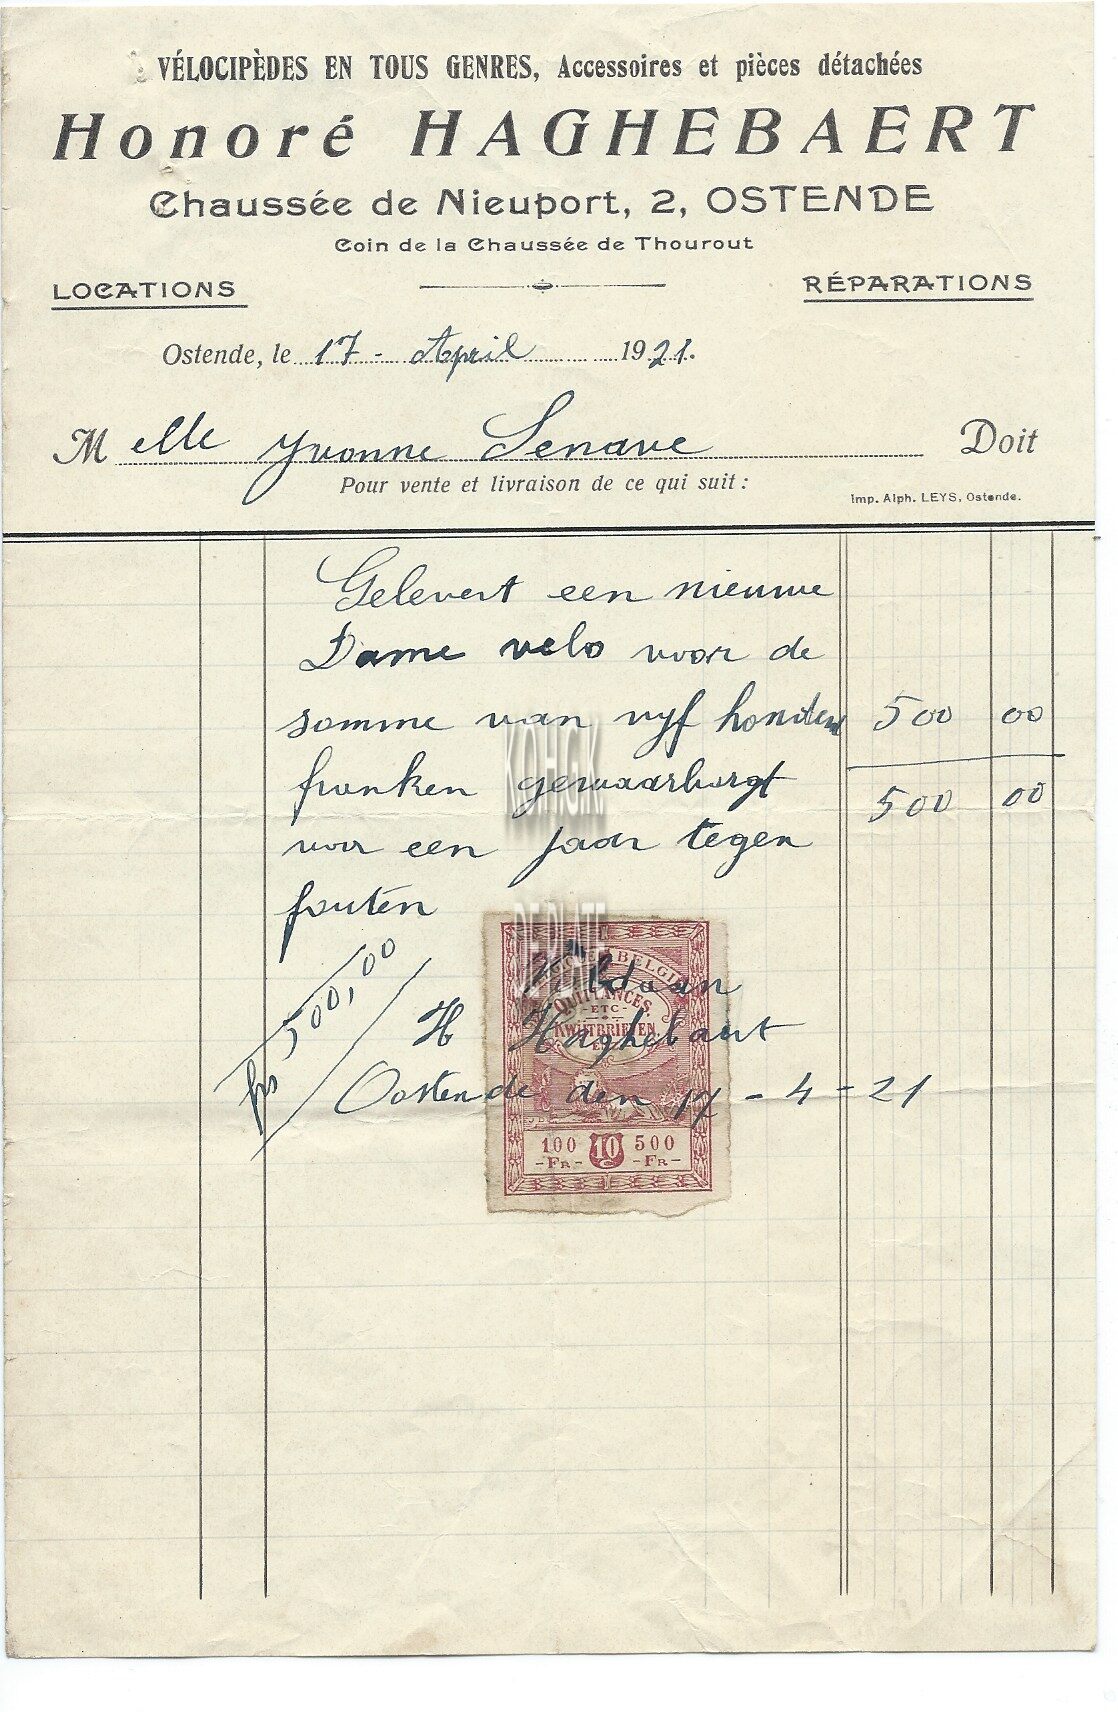 VÉLOCIPÈDES EN TOUS GENRES, Accessoires et pièces détachées
Honoré HAGHEBAERT
Chaussée de Nieuport, 2, OSTENDE
Coin de la Chaussée de Thourout
LOCATIONS
RÉPARATIONS
Ostende, le 17 - April 1921.
Melle Yvonne Senave Doit
Pour vente et livraison de ce qui suit :
Imp. Alph. LEYS, Ostende.
Gelevert een nieuwe
Dame velo voor de
somme van vyf honderd 500 00
franken gewaarborgt 500 00
voor een jaar tegen
fouten
KOHGK
DE PLATE
frs 500,00
Voldaan
H Haghebaert
Oostende den 17 - 4 - 21
BELGI
QUITTANCES
- ETC -
KWIJTBRIEVEN
100 10 500
- FR - C - FR -